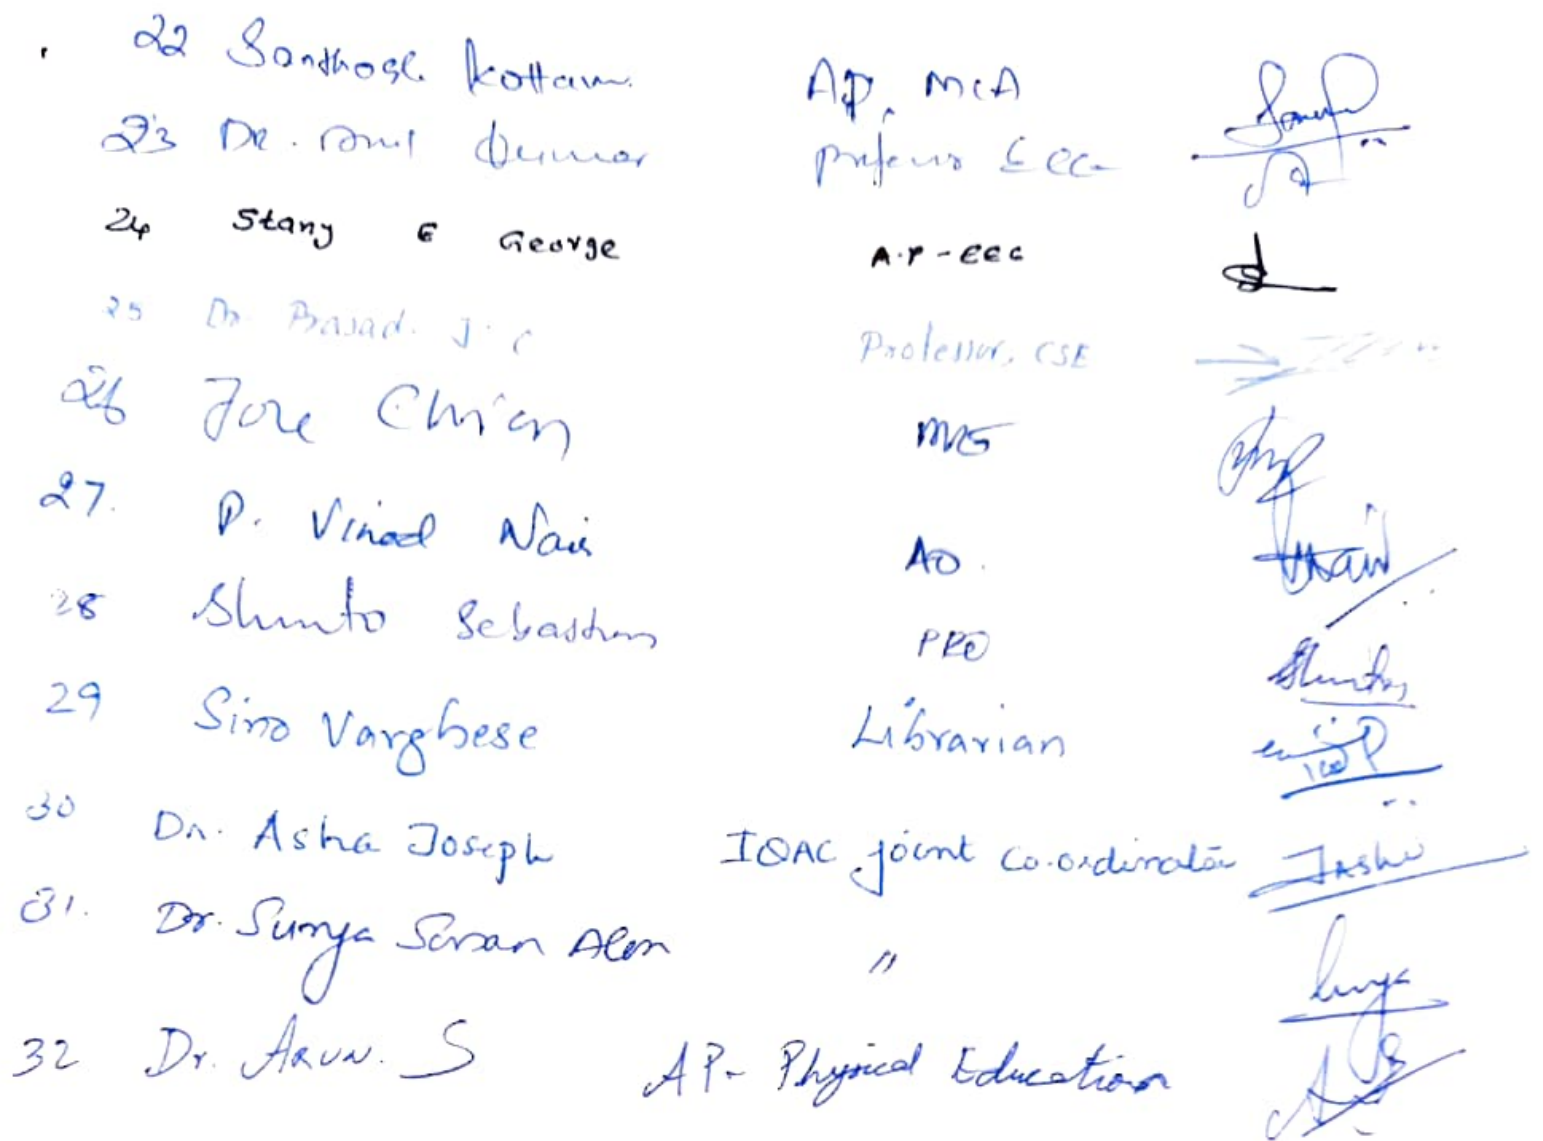 22 Santhosh Kottam. AP, MCA
23 Dr. Anil Kumar Professor ECE
24 Stany E George A.P - EEE
25 Dr. Prasad. J. C Professor, CSE
26 Jose
27. P. Vinod Nair AO.
28 Shinto Sebastian PRO
29 Sino Varghese Librarian
30 Dr. Asha Joseph IQAC joint Co-ordinator
31. Dr. Surya Susan Alen "
32 Dr. Arun. S AP- Physical Education